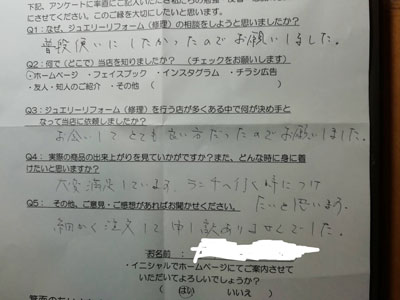 下記、アンケートに率直にご記入いただき
にさせください。このご縁を大切にしたいと思います。
Q1：なぜ、ジュエリーリフォーム（修理）の相談をしようと思いましたか？
普段使いにしたかったのでお願いしました。
Q2：何で（どこで）当店を知りましたか？（チェックをお願いします）
ホームページ ・フェイスブック ・インスタグラム ・チラシ広告
・友人・知人のご紹介 ・その他（ ）
Q3：ジュエリーリフォーム（修理）を行う店が多くある中で何が決め手と
なって当店に依頼しましたか？
お会いしてとても良い方だったのでお願いしました。
Q4：実際の商品の出来上がりを見ていかがですか？また、どんな時に身に着
けたいと思いますか？
大変満足しています。ランチへ行く時につけ
たいと思います。
Q5：その他、ご意見・ご感想があればお聞かせください。
細かく注文して申し訳ありませんでした。
お名前：
・イニシャルでホームページにてご案内させて
いただいてよろしいでしょうか？
（ はい いいえ ）